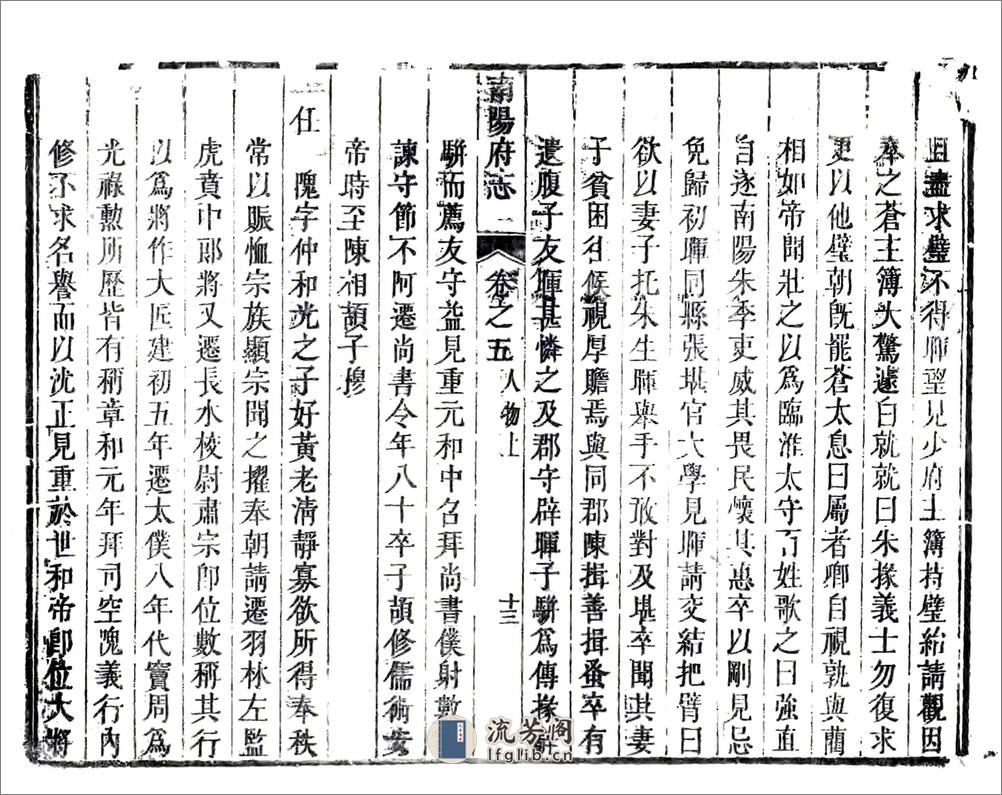 且盡求璧不得暉望見少府主簿持璧紿請觀因
奉之蒼主簿大驚遽白就就曰朱掾義士勿復求
更以他璧朝既罷蒼太息曰屬者卿自視孰與藺
相如帝聞壯之以爲臨淮太守百姓歌之曰強直
自遂南陽朱季吏威其畏民懷其惠卒以剛見忌
免歸初暉同縣張堪官大學見暉請交結把臂曰
欲以妻子托朱生暉舉手不敢對及堪卒聞其妻
子貧困往候視厚贍焉與同郡陳揖善揖蚤卒有
遺腹子友暉甚憐之及郡守辟暉子駢爲傳掾
南陽府志 卷之五 人物上 十三
駢而薦友守益見重元和中召拜尚書僕射數
諫守節不阿遷尚書令年八十卒子頡修儒術安
帝時至陳相頡子穆
任 隗字仲和光之子好黃老淸靜寡欲所得奉秩
常以賑恤宗族顯宗聞之擢奉朝請遷羽林左監
虎賁中郎將又遷長水校尉肅宗卽位數稱其行
以爲將作大匠建初五年遷太僕八年代竇固爲
光祿勲所歷皆有稱章和元年拜司空隗義行內
修不求名譽而以沈正見重於世和帝卽位大將
流芳阁
lfglib.cn